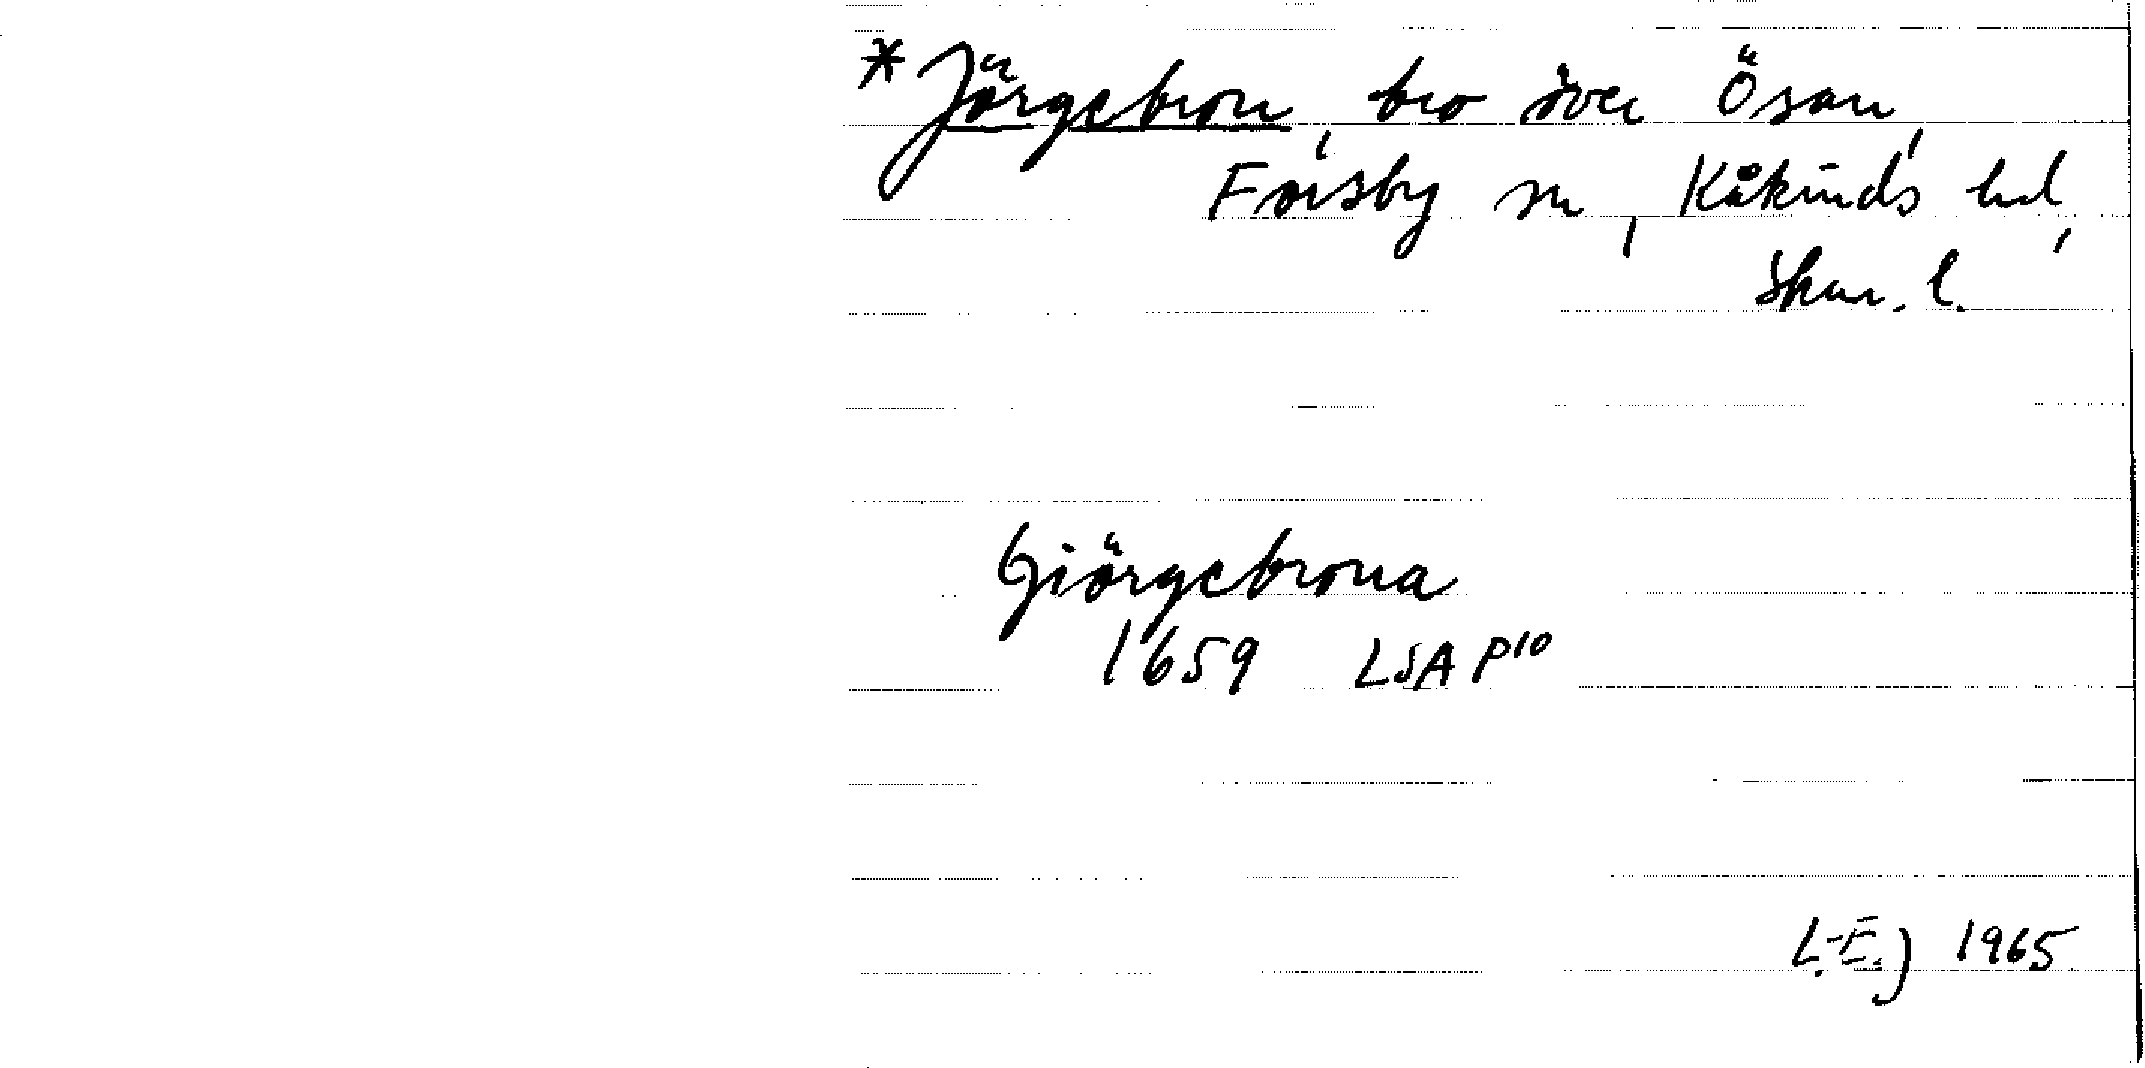 *Jörgebron, bro över Ösan,
Forsby sn, Kåkinds hd,
Skar. l.
Giörgebrona
1659 LSA P10
L.-E.J 1965